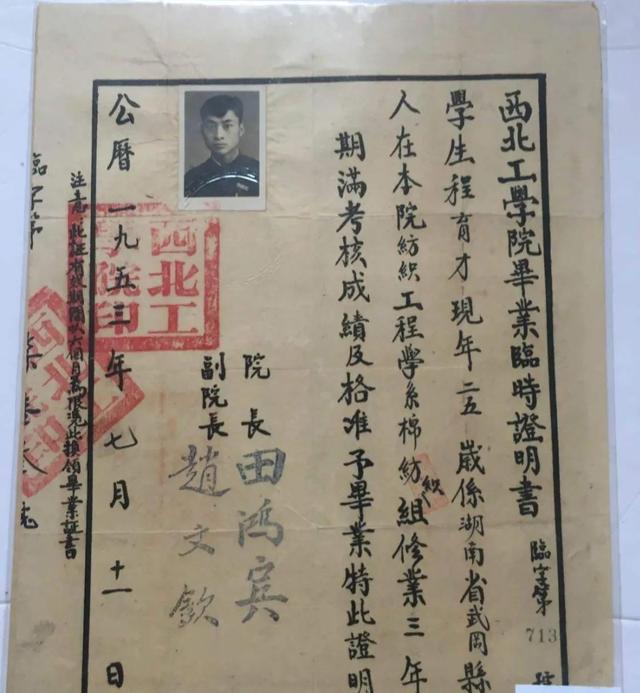 西北工學院畢業臨時證明書
臨字第713號
學生程育才現年二五歲係湖南省武岡縣
人在本院紡織工程學系棉紡織組修業三年
期滿考核成績及格准予畢業特此證明
院長田鴻賓
副院長趙文欽
公曆一九五三年七月十一日
西北工學院印
注意：此証有效期限以六個月為限憑此換領畢業証書
臨字第